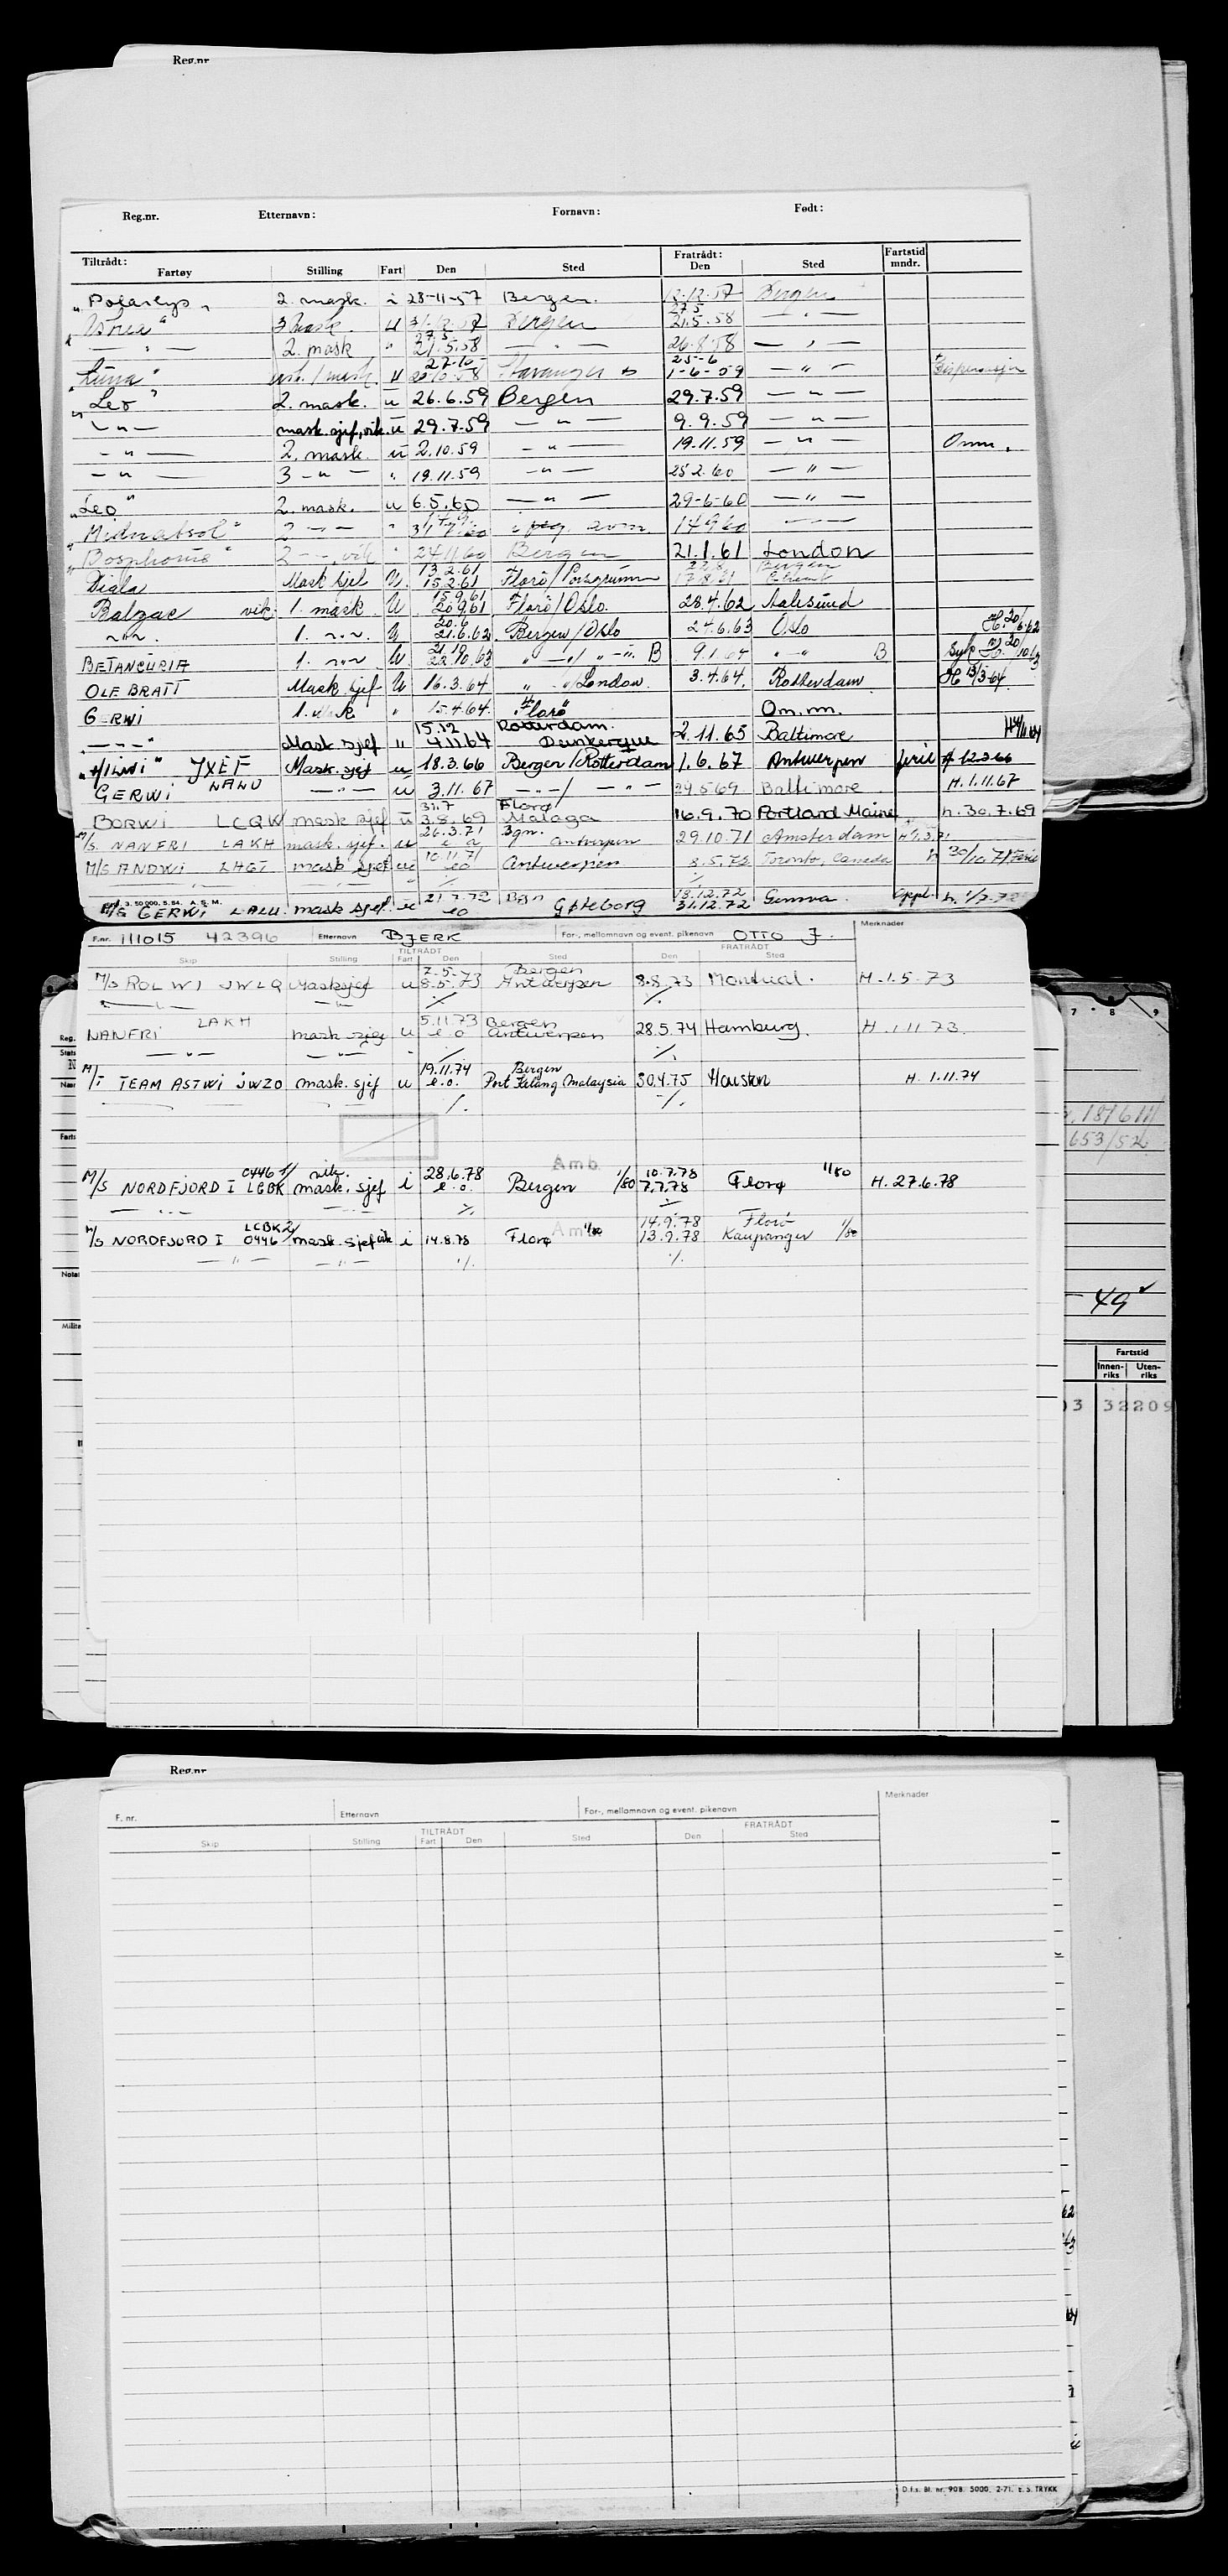 Reg.nr
Reg.nr. Etternavn: Fornavn: Født:
Tiltrådt: Fratrådt: Fartstid
Fartøy Stilling Fart Den Sted Den Sted mndr.
"Polarlys" 2. mask. i 28-11-57 Bergen. 12-12-57 Bergen
3 mask. u 31-12-57 Bergen 27.5 21.5.58 — " —
— " — 2. mask " 27.5 21.5.58 — " — 26.8.58 — " —
"Luna" u Stavanger 25-6 1-6-59 — " — Dispensasjon
"Leo" 2. mask. u 26.6.59 Bergen 29.7.59 — " —
— " — mask.sjef, vik. u 29.7.59 — " — 9.9.59 — " —
— " — 2. mask u 2.10.59 — " 19.11.59 — " — Omm.
— " — 3 — " — " 19.11.59 — " — 25.2.60 — " —
"Leo" 2. mask. u 6.5.60 — " — 29-6-60 — " —
"Midnatsol" 2 — " — " 14.9.60 — " —
"Bosphorus" 2 — " — vik " 24.11.60 Bergen 21.1.61 London
13.2.61 22.8 Bergen
Digla Mask.sjef U. 15.2.61 Florø/Porsgrunn 17.8.61
15.9.61
Balzac vik 1. mask. U 20.9.61 Florø/Oslo. 28.4.62 Aalesund
20.6
— " — 1. — " — U 21.6.62 Bergen/Oslo 24.6.63 Oslo H. 20/6.62
BETANCURIA 1. — " — U. 22.10.63 " — " — B 9.1.64 " — " B Syk
OLE BRATT Mask.sjef U 16.3.64 " /London. 3.4.64. Rotterdam H 13/3-64.
GERWI 1. mask " 15.4.64. "Florø" Om.m.
15.12 Rotterdam.
— " — Mask.sjef " 4.11.64 Dunkerque 2.11.65 Baltimore H4/11.64
"HILWI" JXEF Mask.sjef u 18.3.66 Bergen/Rotterdam 1.6.67 Antwerpen ferie H 12.3.66
GERWI LALU — " — u 3.11.67 — " — / — " — 24.5.69 Baltimore H.1.11.67
31.7 Florø/
BORWI LCQW mask sjef u 3.8.69 Malaga 16.9.70 Portland Maine h.30.7.69
26.3.71 Bgn.
M/S. NANFRI LAKH mask.sjef. u e o Antwerpen 29.10.71 Amsterdam
10.11.71
M/S ANDWI LHGI mask sjef u eo Antwerpen 8.5.72 Toronto, Canada h 30/10.71 Ferie
21.7.72 Bgn 18.12.72
Bl. 3. 50 000. 5.54. A. S. M.
M/S GERWI LALU. mask sjef. u eo Gøteborg 31.12.72 Genova. Oppl. h. 1/7.72
F.nr. 111015 42396 Etternavn BJERK For-, mellomnavn og event. pikenavn OTTO J. Merknader
TILTRÅDT FRATRÅDT
Skip Stilling Fart Den Sted Den Sted
2.5.73 Bergen
M/S ROLWI JWLQ Masksjef u 8.5.73 Antwerpen 8.8.73 Montreal. H.1.5-73
— " — — " — ./. ./.
LAKH 5.11.73 Bergen
NANFRI mask sjef u e o Antwerpen 28.5.74 Hamburg. H.1.11.73.
— " — — " — ./. ./.
19.11.74 Bergen
M/T TEAM ASTWI JWZO mask. sjef u e.o. Port Kelang Malaysia 30.4.75 Houston H. 1.11.74
./. ./.
Amb
0446 1/ vik. 28.6.78 10.7.78 1/80
M/S NORDFJORD I LCBK mask. sjef i e.o. Bergen 1/80 7.7.78 Florø H. 27.6.78
— " — ./. ./.
LCBK 2/ 14.9.78 Florø
M/S NORDFJORD I 0446 mask.sjef vik i 14.8.78 Florø Am 13.9.78 Kaupanger 1/80
— " — — " — ./. ./.
Reg.
Stats
N
Navn
Farts
Notat
Milite
7 8 9
653/52
49
Fartstid
Innen-riks Uten-riks
03 32209
Reg.nr
F. nr. Etternavn For-, mellomnavn og event. pikenavn Merknader
TILTRÅDT FRATRÅDT
Skip Stilling Fart Den Sted Den Sted
D.f.s. Bl. nr. 908. 5000. 2-71. E. S. TRYKK